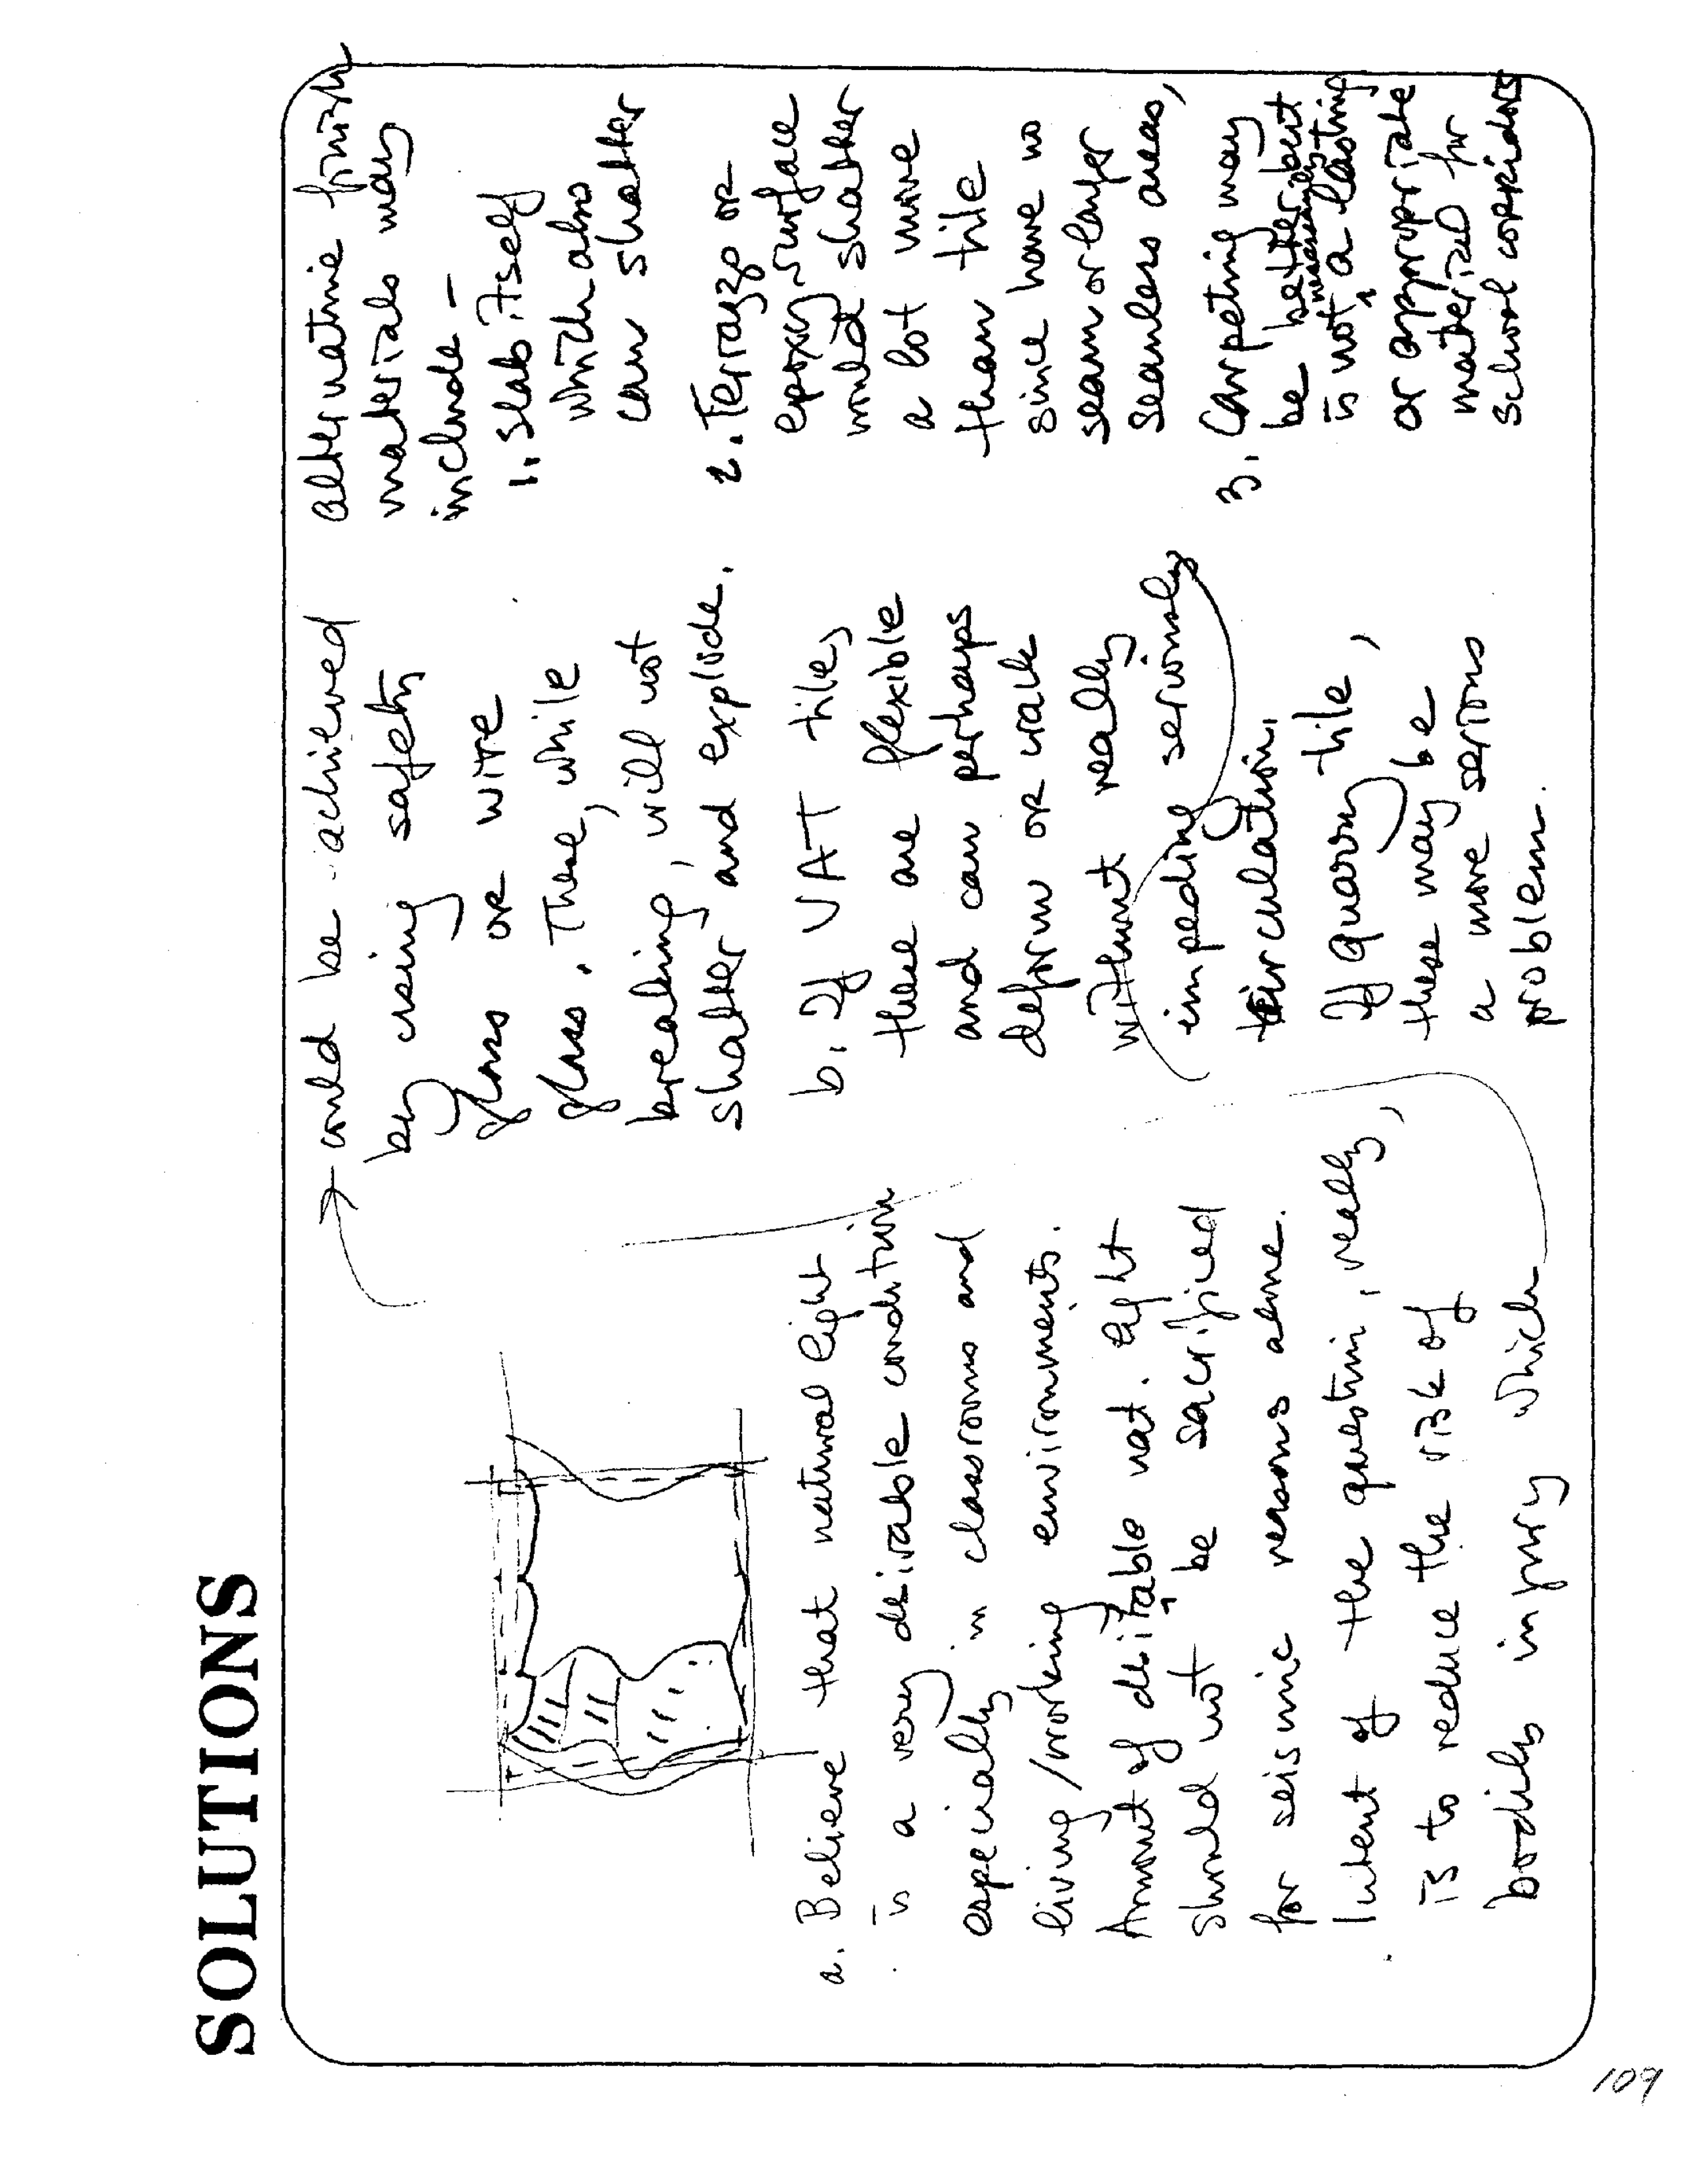 SOLUTIONS
a. Believe that natural light
is a very desirable condition
especially in classrooms and
living/working environments.
Amount of desirable nat. light
should not be sacrificed
for seismic reasons alone.
Intent of the question, really,
is to reduce the risk of
bodily injury which
could be achieved
by using safety
glass or wire
glass. These, while
breaking, will not
shatter and explode.
b. If VAT tile,
these are flexible
and can perhaps
deform or crack
without really
impeding seriously
circulation.
If quarry tile,
these may be
a more serious
problem.
alternative finish
materials may
include -
1. slab itself
which also
can shatter
2. Terrazzo or
epoxy surface
could shatter
a lot more
than tile
since have no
seam or larger
seamless areas,
3. Carpeting may
be better but
is not necessarily a lasting
or appropriate
material for
school corridors
109